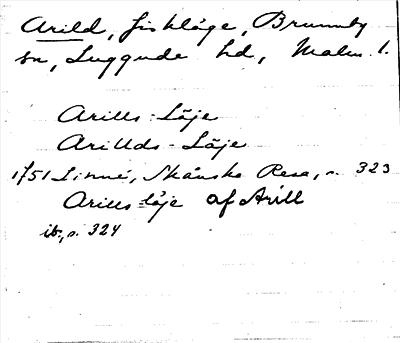 Arild, fiskläge, Brunnby
sn, Luggude hd, Malm. l.
Arills-Läje
Arillds-Läje
1751 Linné, Skånska Resa, s. 323
Arills-läje af Arill
ib., s. 324